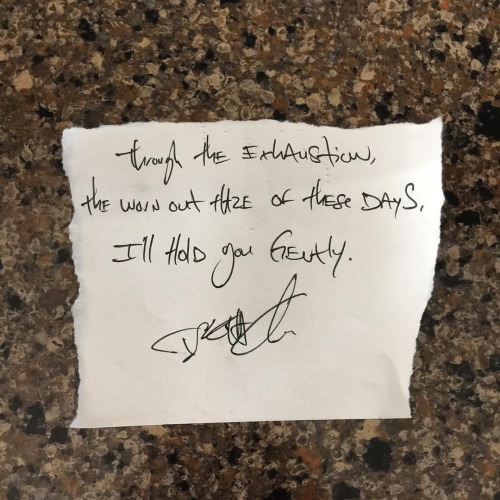 through the Exhaustion,
the worn out haze of these DAYS,
I'll Hold you Gently.